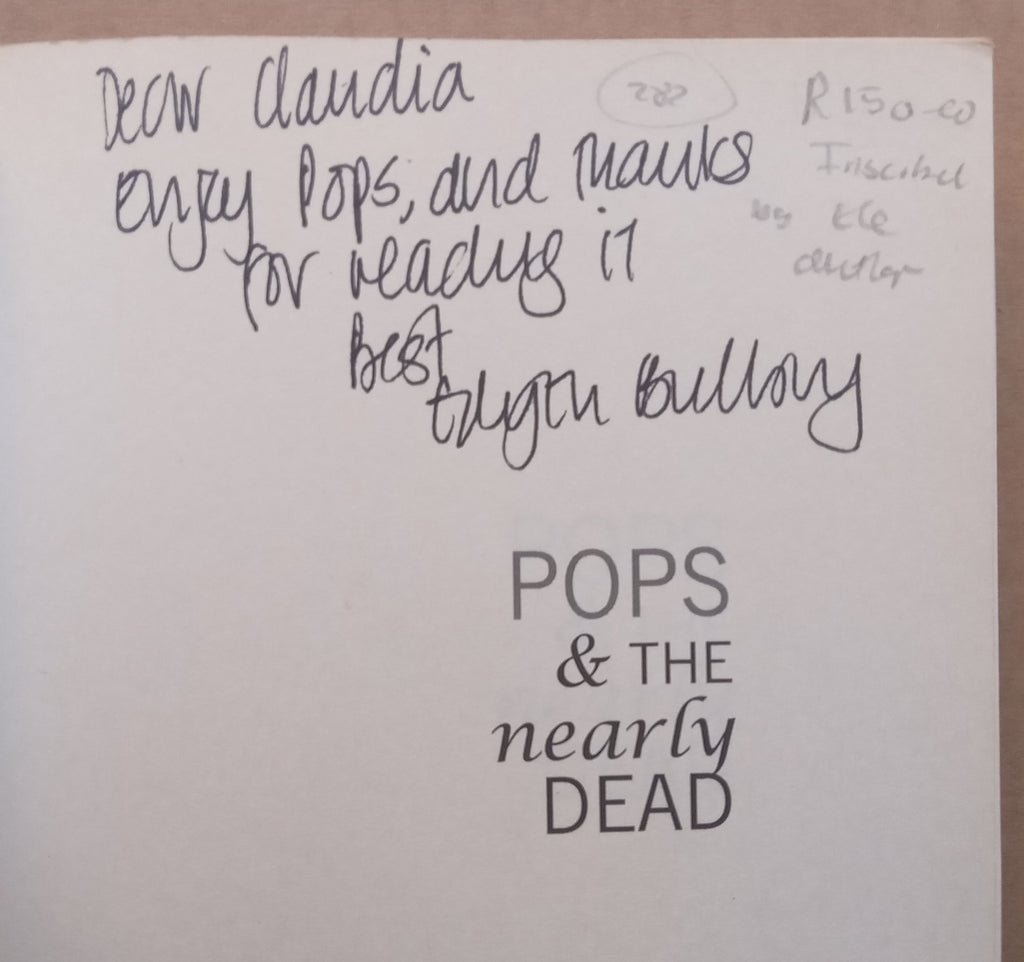 Dear Claudia
enjoy Pops, and thanks
for reading it
Best
Edyth Bulbring
282
R150-00
Inscribed
by the
author
POPS
& THE
nearly
DEAD